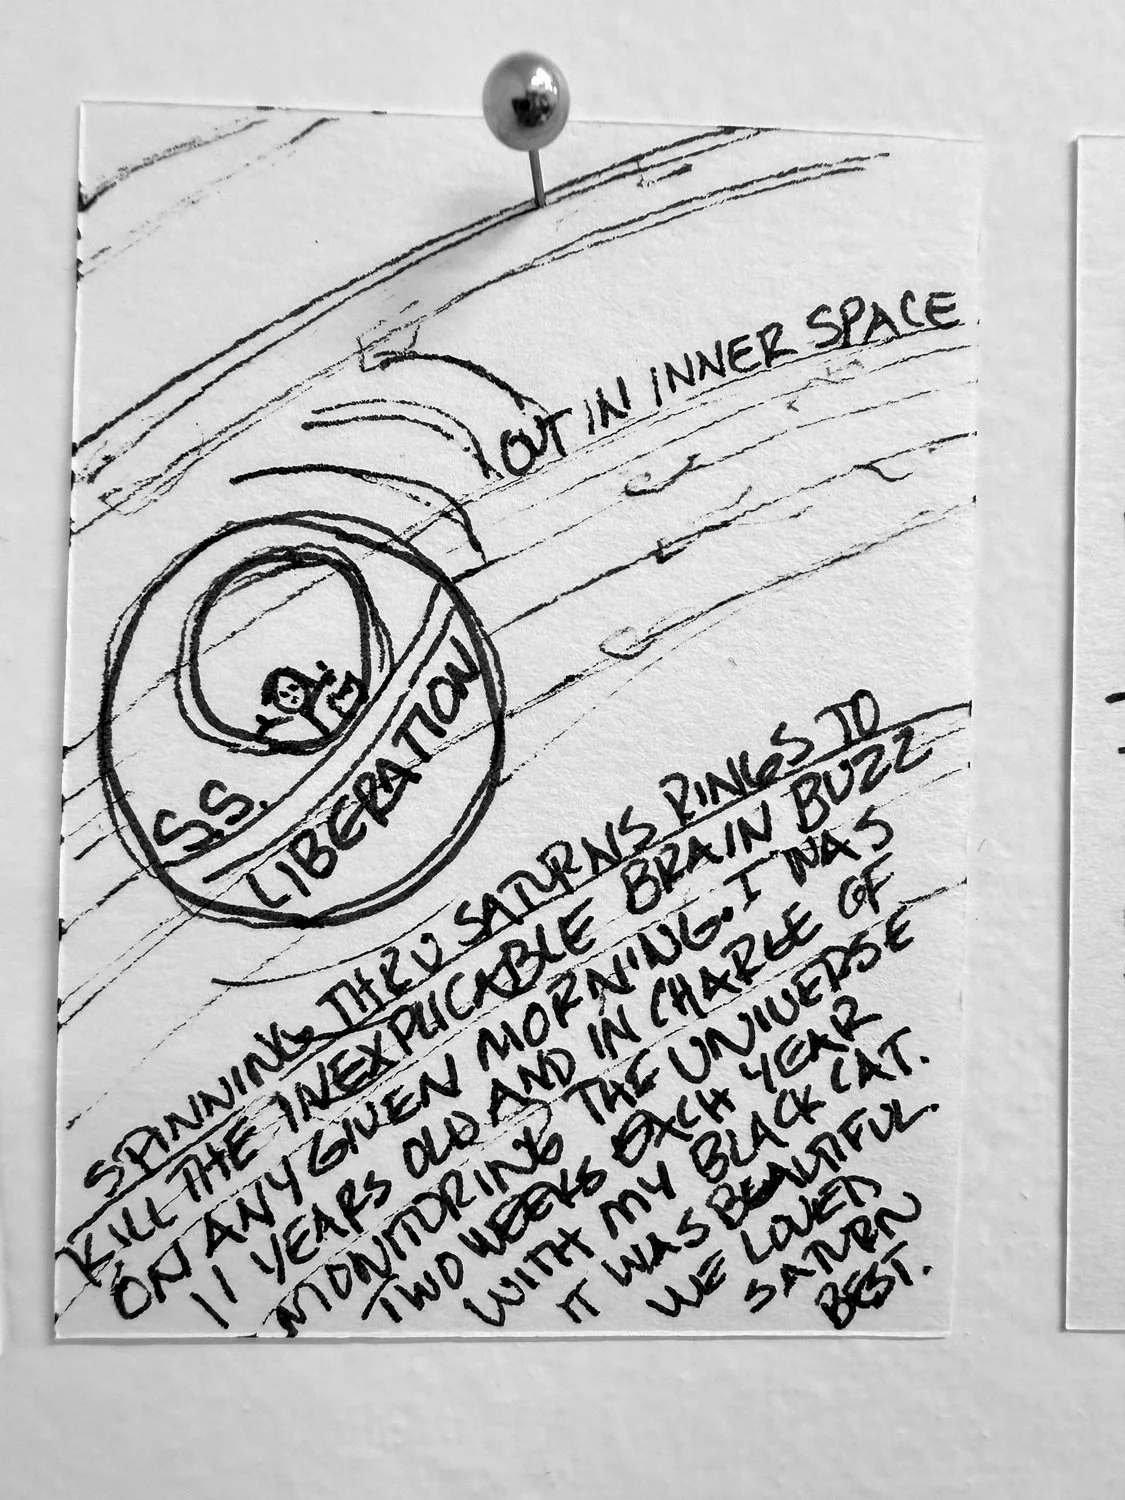 OUT IN INNER SPACE
S.S.
LIBERATION
SPINNING THRU SATURNS RINGS TO
KILL THE INEXPLICABLE BRAIN BUZZ
ON ANY GIVEN MORNING. I WAS
11 YEARS OLD AND IN CHARGE OF
MONITORING THE UNIVERSE
TWO WEEKS EACH YEAR
WITH MY BLACK CAT.
IT WAS BEAUTIFUL.
WE LOVED
SATURN
BEST.